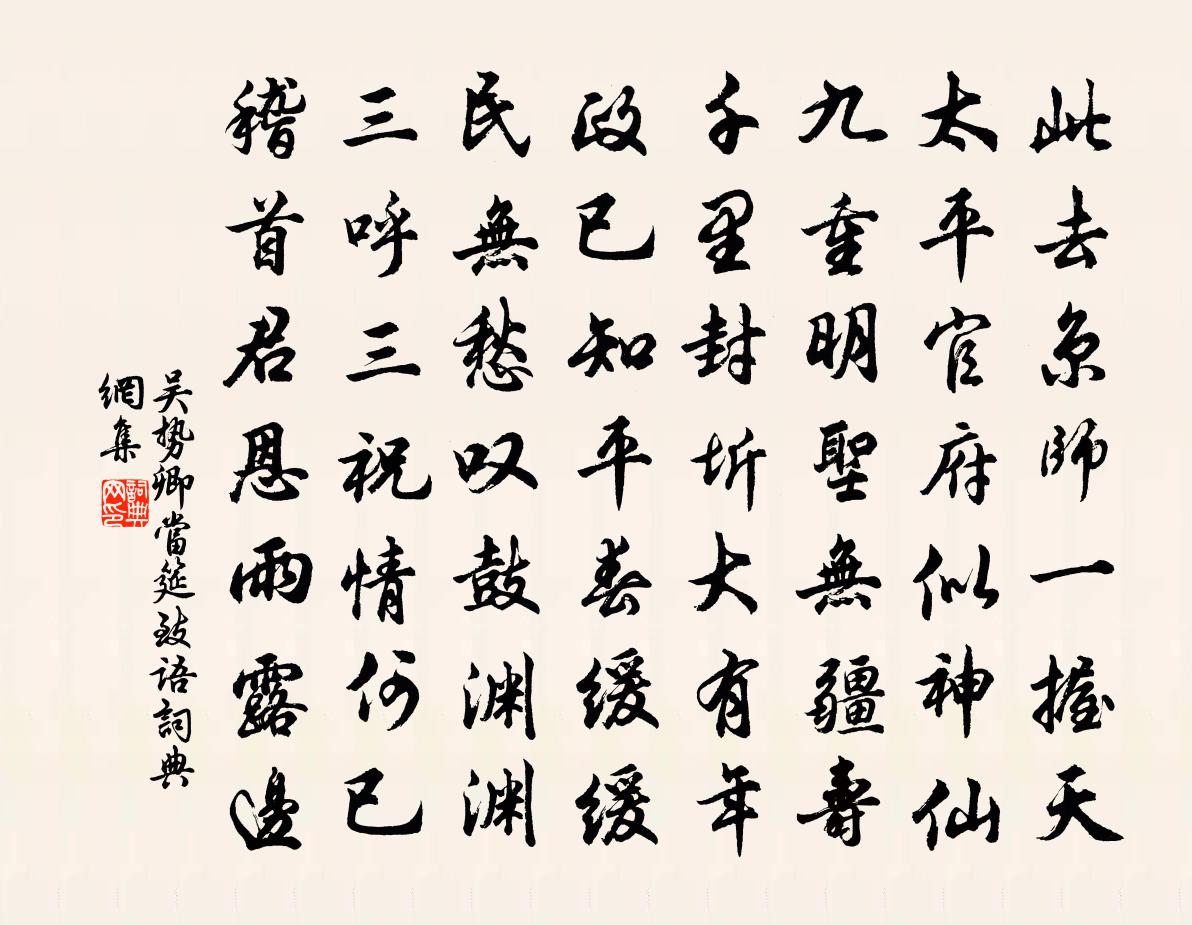 此去京師一握天
太平官府似神仙
九重明聖無疆壽
千里封圻大有年
政已知平春緩緩
民無愁叹鼓渊渊
三呼三祝情何已
稽首君恩雨露邊
吴势卿當筵致语詞典
網集
詞典
网印